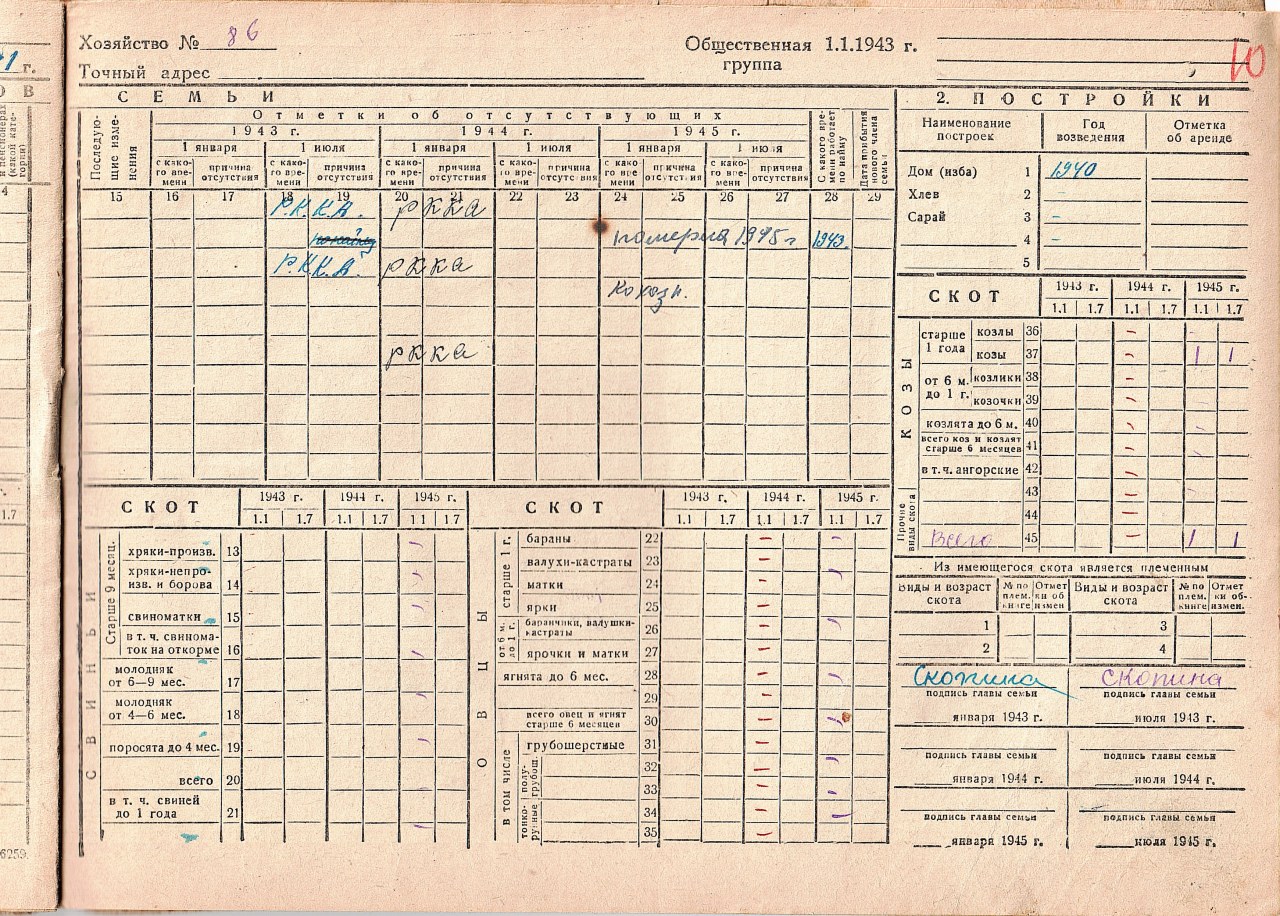 1 г.
О В
и пенсионеров
(какой кате-
гории)
4
г.
1.7
6259.
Хозяйство № 86
Общественная 1.1.1943 г.
группа
10
Точный адрес
СЕМЬИ
Последую-
щие изме-
нения
Отметки об отсутствующих
1943 г. 1944 г. 1945 г.
1 января 1 июля 1 января 1 июля 1 января 1 июля
с како-
го вре-
мени
причина
отсутствия
с како-
го вре-
мени
причина
отсутствия
с како-
го вре-
мени
причина
отсутствия
с како-
го вре-
мени
причина
отсутствия
с како-
го вре-
мени
причина
отсутствия
с како-
го вре-
мени
причина
отсутствия
С какого вре-
мени работает
по найму
Дата прибытия
нового члена
семьи
15 16 17 18 19 20 21 22 23 24 25 26 27 28 29
Р.К.К.А. РККА
померла 1945 г 1943
Р.К.К.А. РККА
РККА
2. ПОСТРОЙКИ
Наименование
построек
Год
возведения
Отметка
об аренде
Дом (изба) 1 1940
Хлев 2 –
Сарай 3 –
4 –
5
СКОТ 1943 г. 1944 г. 1945 г.
1.1 1.7 1.1 1.7 1.1 1.7
КОЗЫ
старше
1 года
козлы 36 –
козы 37 – 1 1
от 6 м.
до 1 г.
козлики 38 –
козочки 39 –
козлята до 6 м. 40 –
всего коз и козлят
старше 6 месяцев 41 –
в т.ч. ангорские 42 –
Прочие
виды скота
43 –
44 –
Всего 45 – 1 1
СКОТ 1943 г. 1944 г. 1945 г.
1.1 1.7 1.1 1.7 1.1 1.7
СВИНЬИ
Старше 9 месяц.
хряки-произв. 13
хряки-непро-
изв. и борова 14
свиноматки 15
в т. ч. свинома-
ток на откорме 16
молодняк
от 6—9 мес. 17
молодняк
от 4—6 мес. 18
поросята до 4 мес. 19
всего 20
в т. ч. свиней
до 1 года 21
СКОТ 1943 г. 1944 г. 1945 г.
1.1 1.7 1.1 1.7 1.1 1.7
ОВЦЫ
старше 1 г.
бараны 22 –
валухи-кастраты 23 –
матки 24 –
ярки 25 –
от 6 м.
до 1 г.
баранчики, валушки-
кастраты 26 –
ярочки и матки 27 –
ягнята до 6 мес. 28 –
29 –
всего овец и ягнят
старше 6 месяцев 30 –
в том числе
грубошерстные 31 –
полу-
грубош.
32 –
33 –
тонко-
рунные
34 –
35 –
Из имеющегося скота является племенным
Виды и возраст
скота
№ по
плем.
книге
Отмет
ки об
измен
Виды и возраст
скота
№ по
плем.
книге
Отмет
ки об-
измен.
1 3
2 4
Скопина Скопина
подпись главы семьи подпись главы семьи
января 1943 г. июля 1943 г.
подпись главы семьи подпись главы семьи
января 1944 г. июля 1944 г.
подпись главы семьи подпись главы семьи
января 1945 г. июля 1945 г.